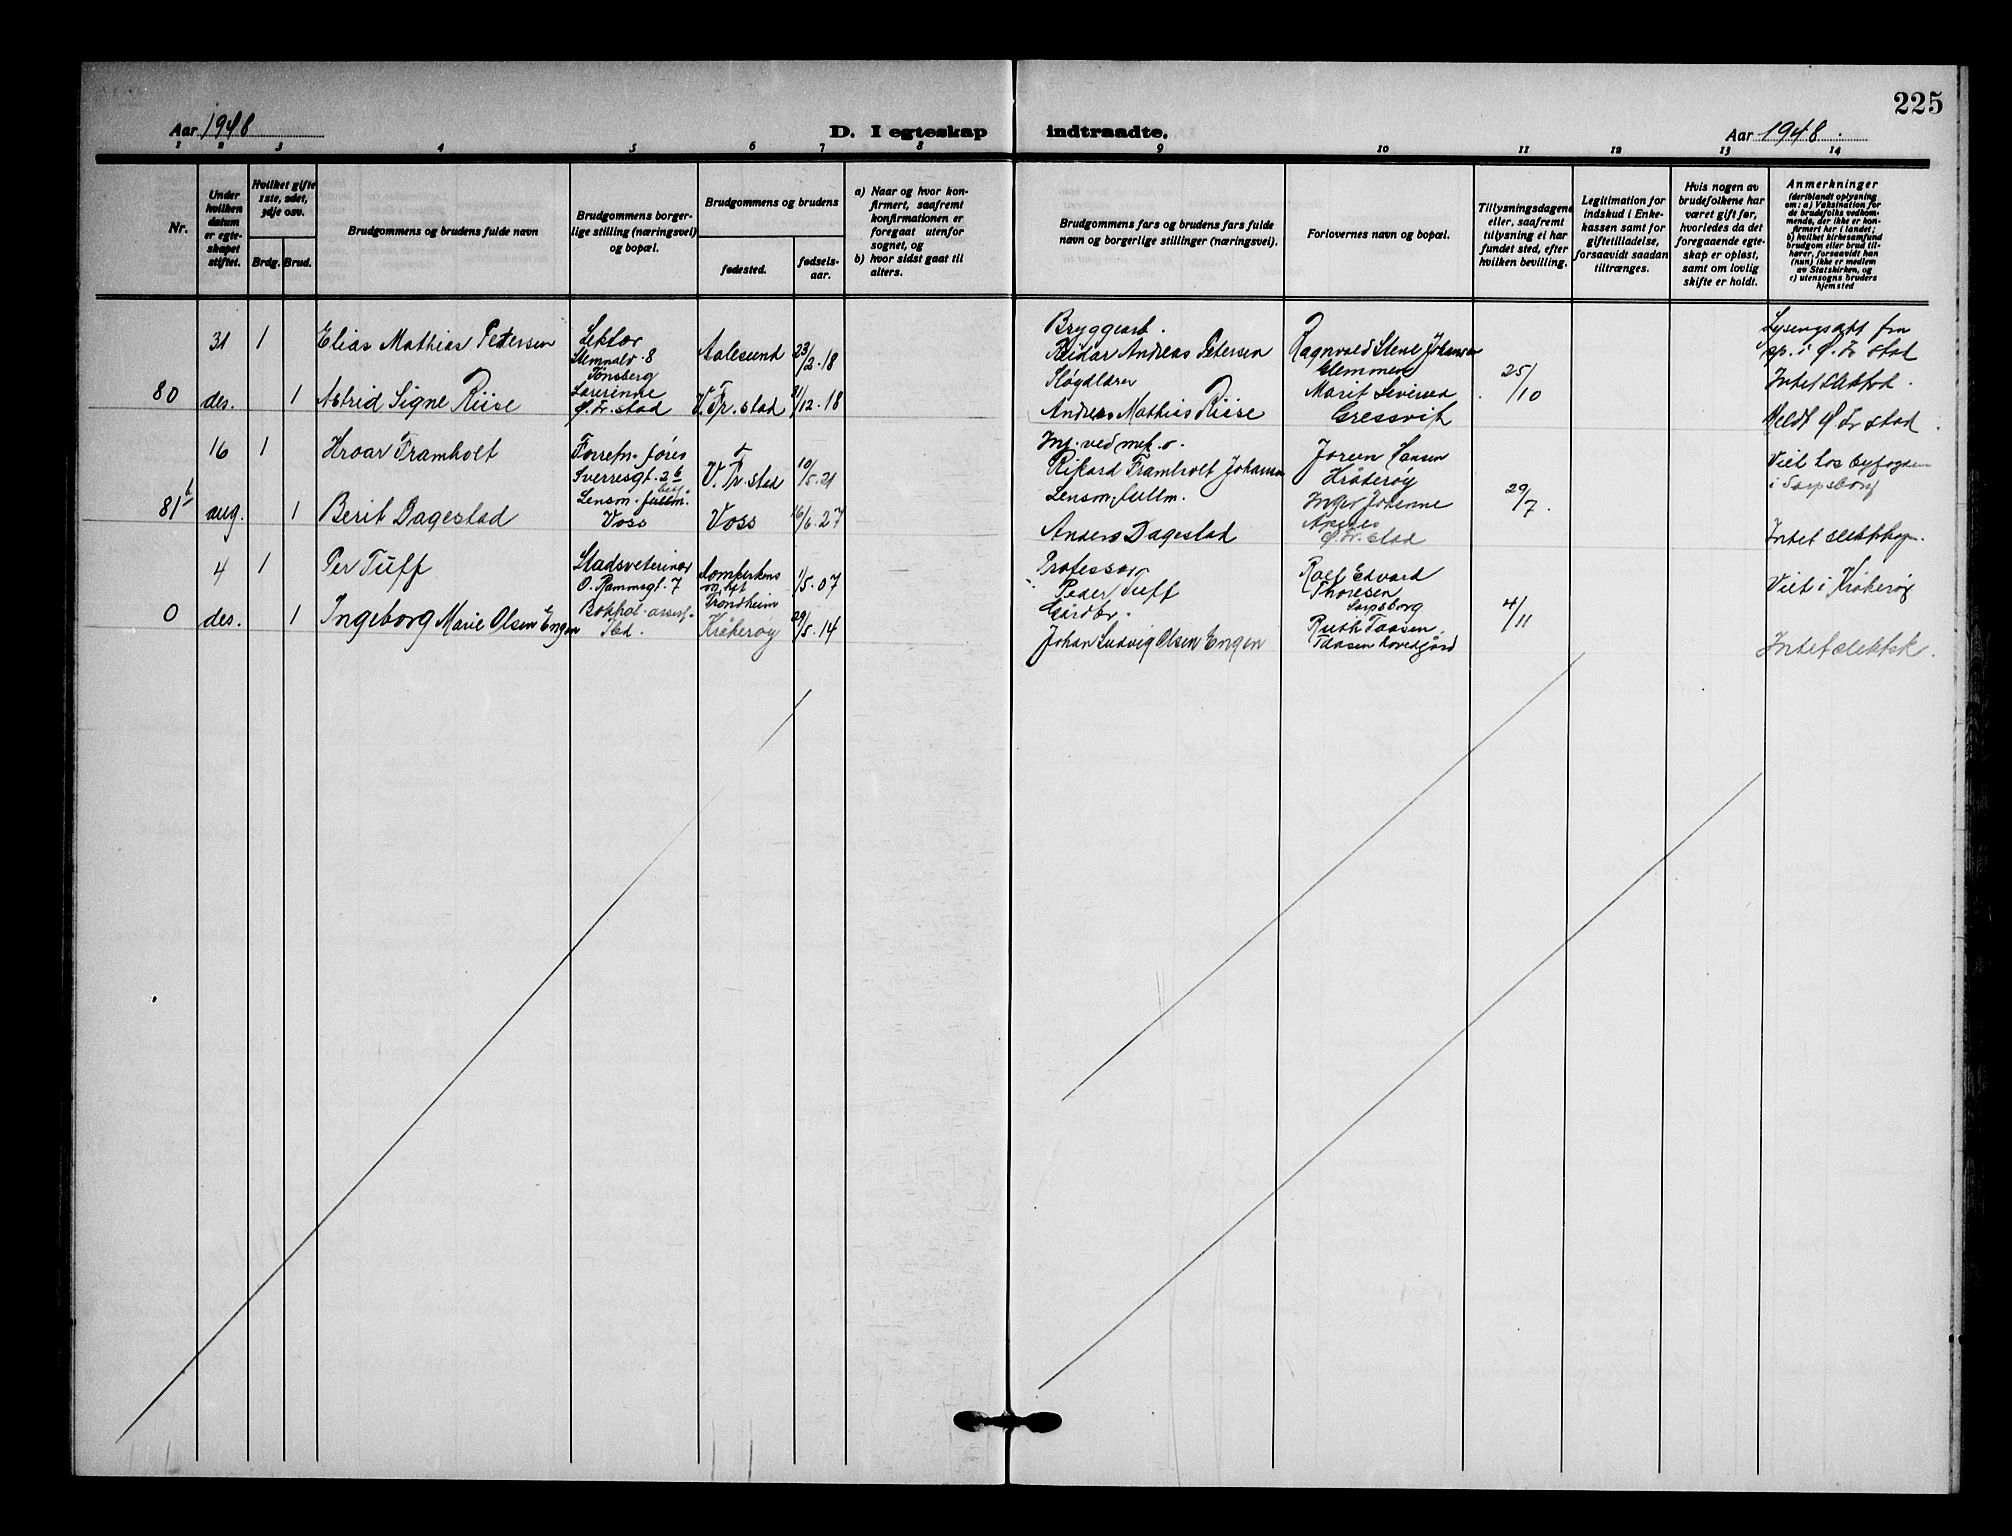 225
Aar 1948
D. I egteskap indtraadte.
Aar 1948.
1 2 3 4 5 6 7 8 9 10 11 12 13 14
Nr.
Under
hvilken
datum
er egte-
skapet
stiftet.
Hvilket gifte
1ste, 2det,
3dje osv.
Brdg. Brud.
Brudgommens og brudens fulde navn
Brudgommens borger-
lige stilling (næringsvei)
og bopæl.
Brudgommens og brudens
fødested.
fødsels-
aar.
a) Naar og hvor kon-
firmert, saafremt
konfirmationen er
foregaat utenfor
sognet, og
b) hvor sidst gaat til
alters.
Brudgommens fars og brudens fars fulde
navn og borgerlige stillinger (næringsvei).
Forlovernes navn og bopæl.
Tillysningsdagene
eller, saafremt
tillysning ei har
fundet sted, efter
hvilken bevilling.
Legitimation for
indskud i Enke-
kassen samt for
giftetilladelse,
forsaavidt saadan
tiltrænges.
Hvis nogen av
brudefolkene har
været gift før,
hvorledes da det
foregaaende egte-
skap er opløst,
samt om lovlig
skifte er holdt.
Anmerkninger
(deriblandt oplysning
om: a) Vaksination for
de brudefolks vedkom-
mende, der ikke er kon-
firmert her i landet;
b) hvilket kirkesamfund
brudgom eller brud til-
hører, forsaavidt han
(hun) ikke er medlem
av Statskirken, og
c) utensogns bruders
hjemsted
31 1 Elias Mathias Petersen
Lektor
Stemnalv. 8
Tønsberg
Aalesund 23/2.18
Bryggearb.
Reidar Andreas Petersen
Ragnvald Stene Johansen
Glemmen
25/10
Lysingsatt fra
sp. i Ø. Fr.stad
Intet slektsk.
80 des. 1 Astrid Signe Riise
Lærerinne
Ø. Fr.stad
V. Fr.stad 31/12.18
Sløgdlærer
Andreas Mathias Riise
Marit Siversen
Gressvik
Meldt Ø Fr stad.
16 1 Hroar Framholt
Forretn.fører
Sverresgt. 2b
V. Fr.stad 10/5.21
Ing. ved mek.
Rikard Framholt Johansen
Joreen Hansen
Kråkerøy
29/7.
Viet hos byfogden
i Sarpsborg
81b aug. 1 Berit Dagestad
Lensm.fullm.
Voss
Voss 16/6.27
Lensm. fullm.
Anders Dagestad
Inger Johanne
Ø. Fr. stad
Intet slektskap.
4 1 Per Tuff
Stadsveterinær
O. Rammsgt. 7
Trondheim
1/5.07
Professor
Peder Tuff
Rolf Edvard
Thoresen
Sarpsborg
4/11
Viet i Kråkerøy
0 des. 1 Ingeborg Marie Olsen Engen
Bokhol.assist.
Ibd.
Kråkerøy 29/5.14
Gårdbr.
Johan Ludvig Olsen Engen
Ruth Taasen,
Taasen hovedgård
Intet slektsk.